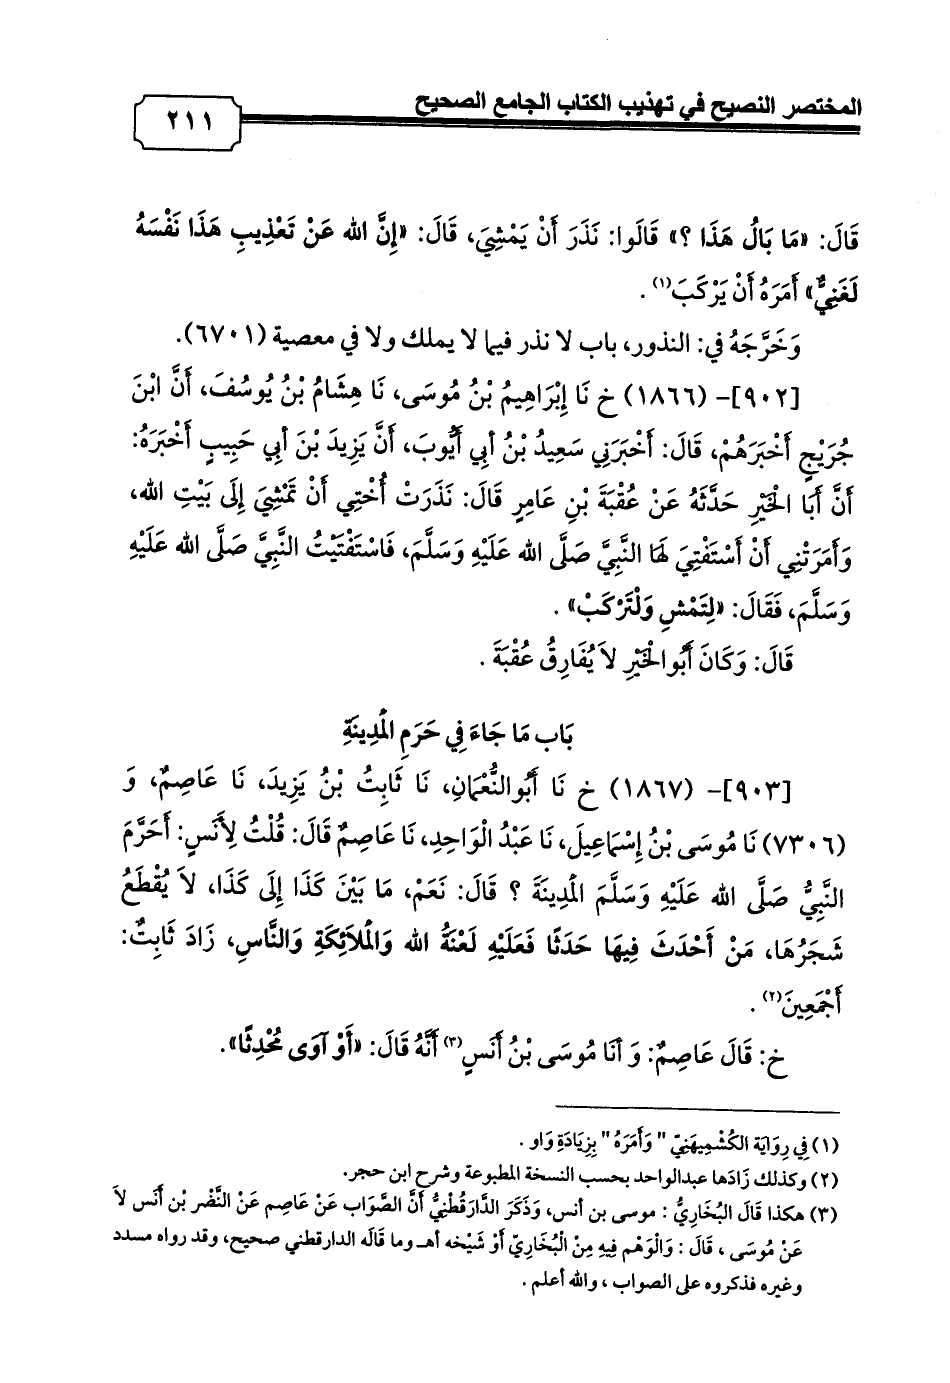 المختصر النصيح في تهذيب الكتاب الجامع الصحيح
٢١١
قَالَ: «مَا بَالُ هَذَا ؟» قَالُوا: نَذَرَ أَنْ يَمْشِيَ، قَالَ: «إِنَّ الله عَنْ تَعْذِيبِ هَذَا نَفْسَهُ
لَغَنِيٌّ» أَمَرَهُ أَنْ يَرْكَبَ(١) .
وَخَرَّجَهُ في: النذور، باب لا نذر فيما لا يملك ولا في معصية (٦٧٠١).
[٩٠٢]- (١٨٦٦) خ نَا إِبْرَاهِيمُ بْنُ مُوسَى، نَا هِشَامُ بْنُ يُوسُفَ، أَنَّ ابْنَ
جُرَيْجٍ أَخْبَرَهُمْ، قَالَ: أَخْبَرَنِي سَعِيدُ بْنُ أبِي أَيُّوبَ، أَنَّ يَزِيدَ بْنَ أبِي حَبِيبٍ أَخْبَرَهُ:
أَنَّ أَبَا الْخَيْرِ حَدَّثَهُ عَنْ عُقْبَةَ بْنِ عَامِرٍ قَالَ: نَذَرَتْ أُخْتِي أَنْ تَمْشِيَ إِلَى بَيْتِ الله،
وَأَمَرَتْنِي أَنْ أَسْتَفْتِيَ لَهَا النَّبِيَّ صَلَّى الله عَلَيْهِ وَسَلَّمَ، فَاسْتَفْتَيْتُ النَّبِيَّ صَلَّى الله عَلَيْهِ
وَسَلَّمَ، فَقَالَ: «لِتَمْشِ وَلْتَرْكَبْ» .
قَالَ: وَكَانَ أَبُوالْخَيْرِ لاَ يُفَارِقُ عُقْبَةَ .
بَاب مَا جَاءَ فِي حَرَمِ الْمَدِينَةِ
[٩٠٣]- (١٨٦٧) خ نَا أَبُوالنُّعْمَانِ، نَا ثَابِتُ بْنُ يَزِيدَ، نَا عَاصِمٌ، وَ
(٧٣٠٦) نَا مُوسَى بْنُ إِسْمَاعِيلَ، نَا عَبْدُ الْوَاحِدِ، نَا عَاصِمٌ قَالَ: قُلْتُ لِأَنَسٍ: أَحَرَّمَ
النَّبِيُّ صَلَّى الله عَلَيْهِ وَسَلَّمَ الْمَدِينَةَ ؟ قَالَ: نَعَمْ، مَا بَيْنَ كَذَا إِلَى كَذَا، لاَ يُقْطَعُ
شَجَرُهَا، مَنْ أَحْدَثَ فِيهَا حَدَثًا فَعَلَيْهِ لَعْنَةُ الله وَالْمَلاَئِكَةِ وَالنَّاسِ، زَادَ ثَابِتٌ:
أَجْمَعِينَ(٢) .
خ: قَالَ عَاصِمٌ: وَ أَنَا مُوسَى بْنُ أَنَسٍ(٣) أَنَّهُ قَالَ: «أَوْ آوَى مُحْدِثًا».
(١) فِي رِوَايَة الكُشْمِيهَنِيّ " وَأَمَرَهُ " بِزِيَادَةِ وَاو .
(٢) وكذلك زَادَها عبدالواحد بحسب النسخة المطبوعة وشرح ابن حجر.
(٣) هكذا قَالَ البُخَارِيُّ : موسى بن أنس، وَذَكَرَ الدَّارَقُطْنِيُّ أَنَّ الصَّوَاب عَنْ عَاصِم عَنْ النَّضْر بْن أَنَس لاَ
عَنْ مُوسَى ، قَالَ : وَالْوَهْم فِيهِ مِنْ الْبُخَارِيّ أَوْ شَيْخه أهـ وما قَالَه الدارقطني صحيح، وقد رواه مسدد
وغيره فذكروه على الصواب ، والله أعلم .